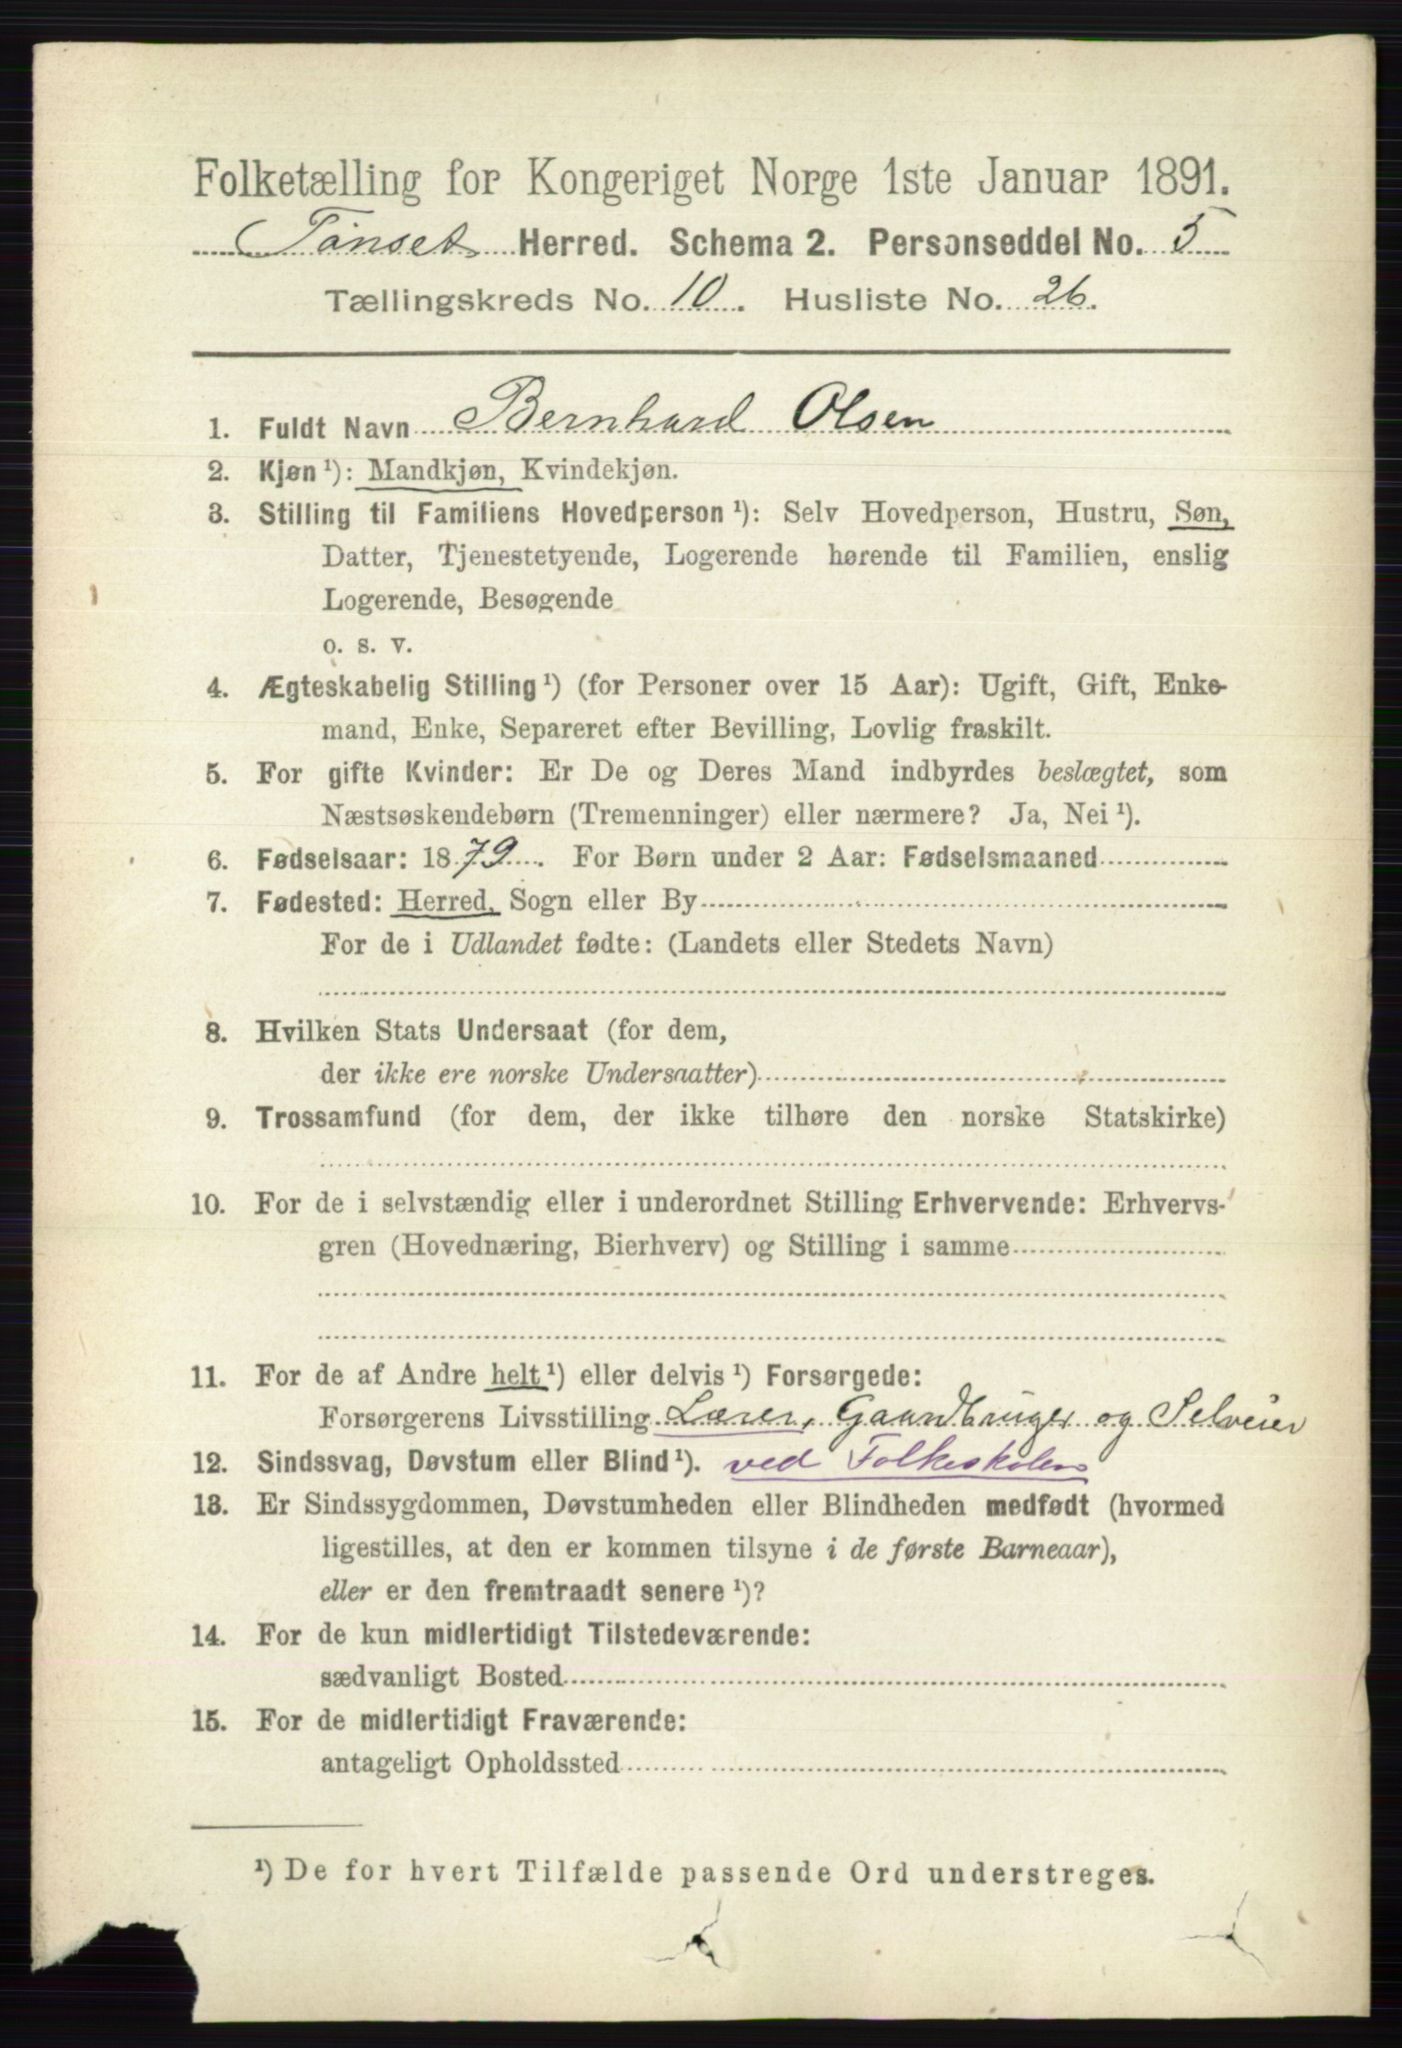 Folketælling for Kongeriget Norge 1ste Januar 1891.
Tønset Herred. Schema 2. Personseddel No. 5
Tællingskreds No. 10. Husliste No. 26.
1. Fuldt Navn Bernhard Olsen
2. Kjøn ¹): Mandkjøn, Kvindekjøn.
3. Stilling til Familiens Hovedperson ¹): Selv Hovedperson, Hustru, Søn,
Datter, Tjenestetyende, Logerende hørende til Familien, enslig
Logerende, Besøgende
o. s. v.
4. Ægteskabelig Stilling ¹) (for Personer over 15 Aar): Ugift, Gift, Enke-
mand, Enke, Separeret efter Bevilling, Lovlig fraskilt.
5. For gifte Kvinder: Er De og Deres Mand indbyrdes beslægtet, som
Næstsøskendebørn (Tremenninger) eller nærmere? Ja, Nei ¹).
6. Fødselsaar: 1879. For Børn under 2 Aar: Fødselsmaaned
7. Fødested: Herred, Sogn eller By
For de i Udlandet fødte: (Landets eller Stedets Navn)
8. Hvilken Stats Undersaat (for dem,
der ikke ere norske Undersaatter)
9. Trossamfund (for dem, der ikke tilhøre den norske Statskirke)
10. For de i selvstændig eller i underordnet Stilling Erhvervende: Erhvervs-
gren (Hovednæring, Bierhverv) og Stilling i samme
11. For de af Andre helt ¹) eller delvis ¹) Forsørgede:
Forsørgerens Livsstilling Lærer, Gaardbruger og Selveier
12. Sindssvag, Døvstum eller Blind ¹). ved Folkeskolen
13. Er Sindssygdommen, Døvstumheden eller Blindheden medfødt (hvormed
ligestilles, at den er kommen tilsyne i de første Barneaar),
eller er den fremtraadt senere ¹)?
14. For de kun midlertidigt Tilstedeværende:
sædvanligt Bosted
15. For de midlertidigt Fraværende:
antageligt Opholdssted
¹) De for hvert Tilfælde passende Ord understreges.